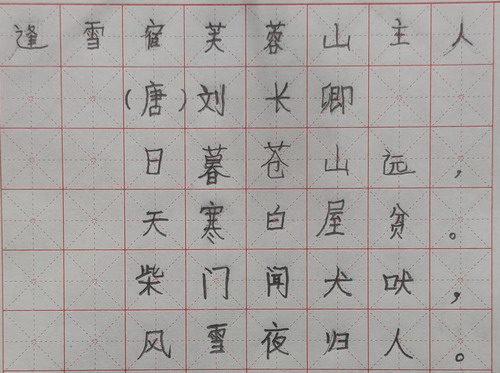 逢雪宿芙蓉山主人
(唐)刘长卿
日暮苍山远，
天寒白屋贫。
柴门闻犬吠，
风雪夜归人。